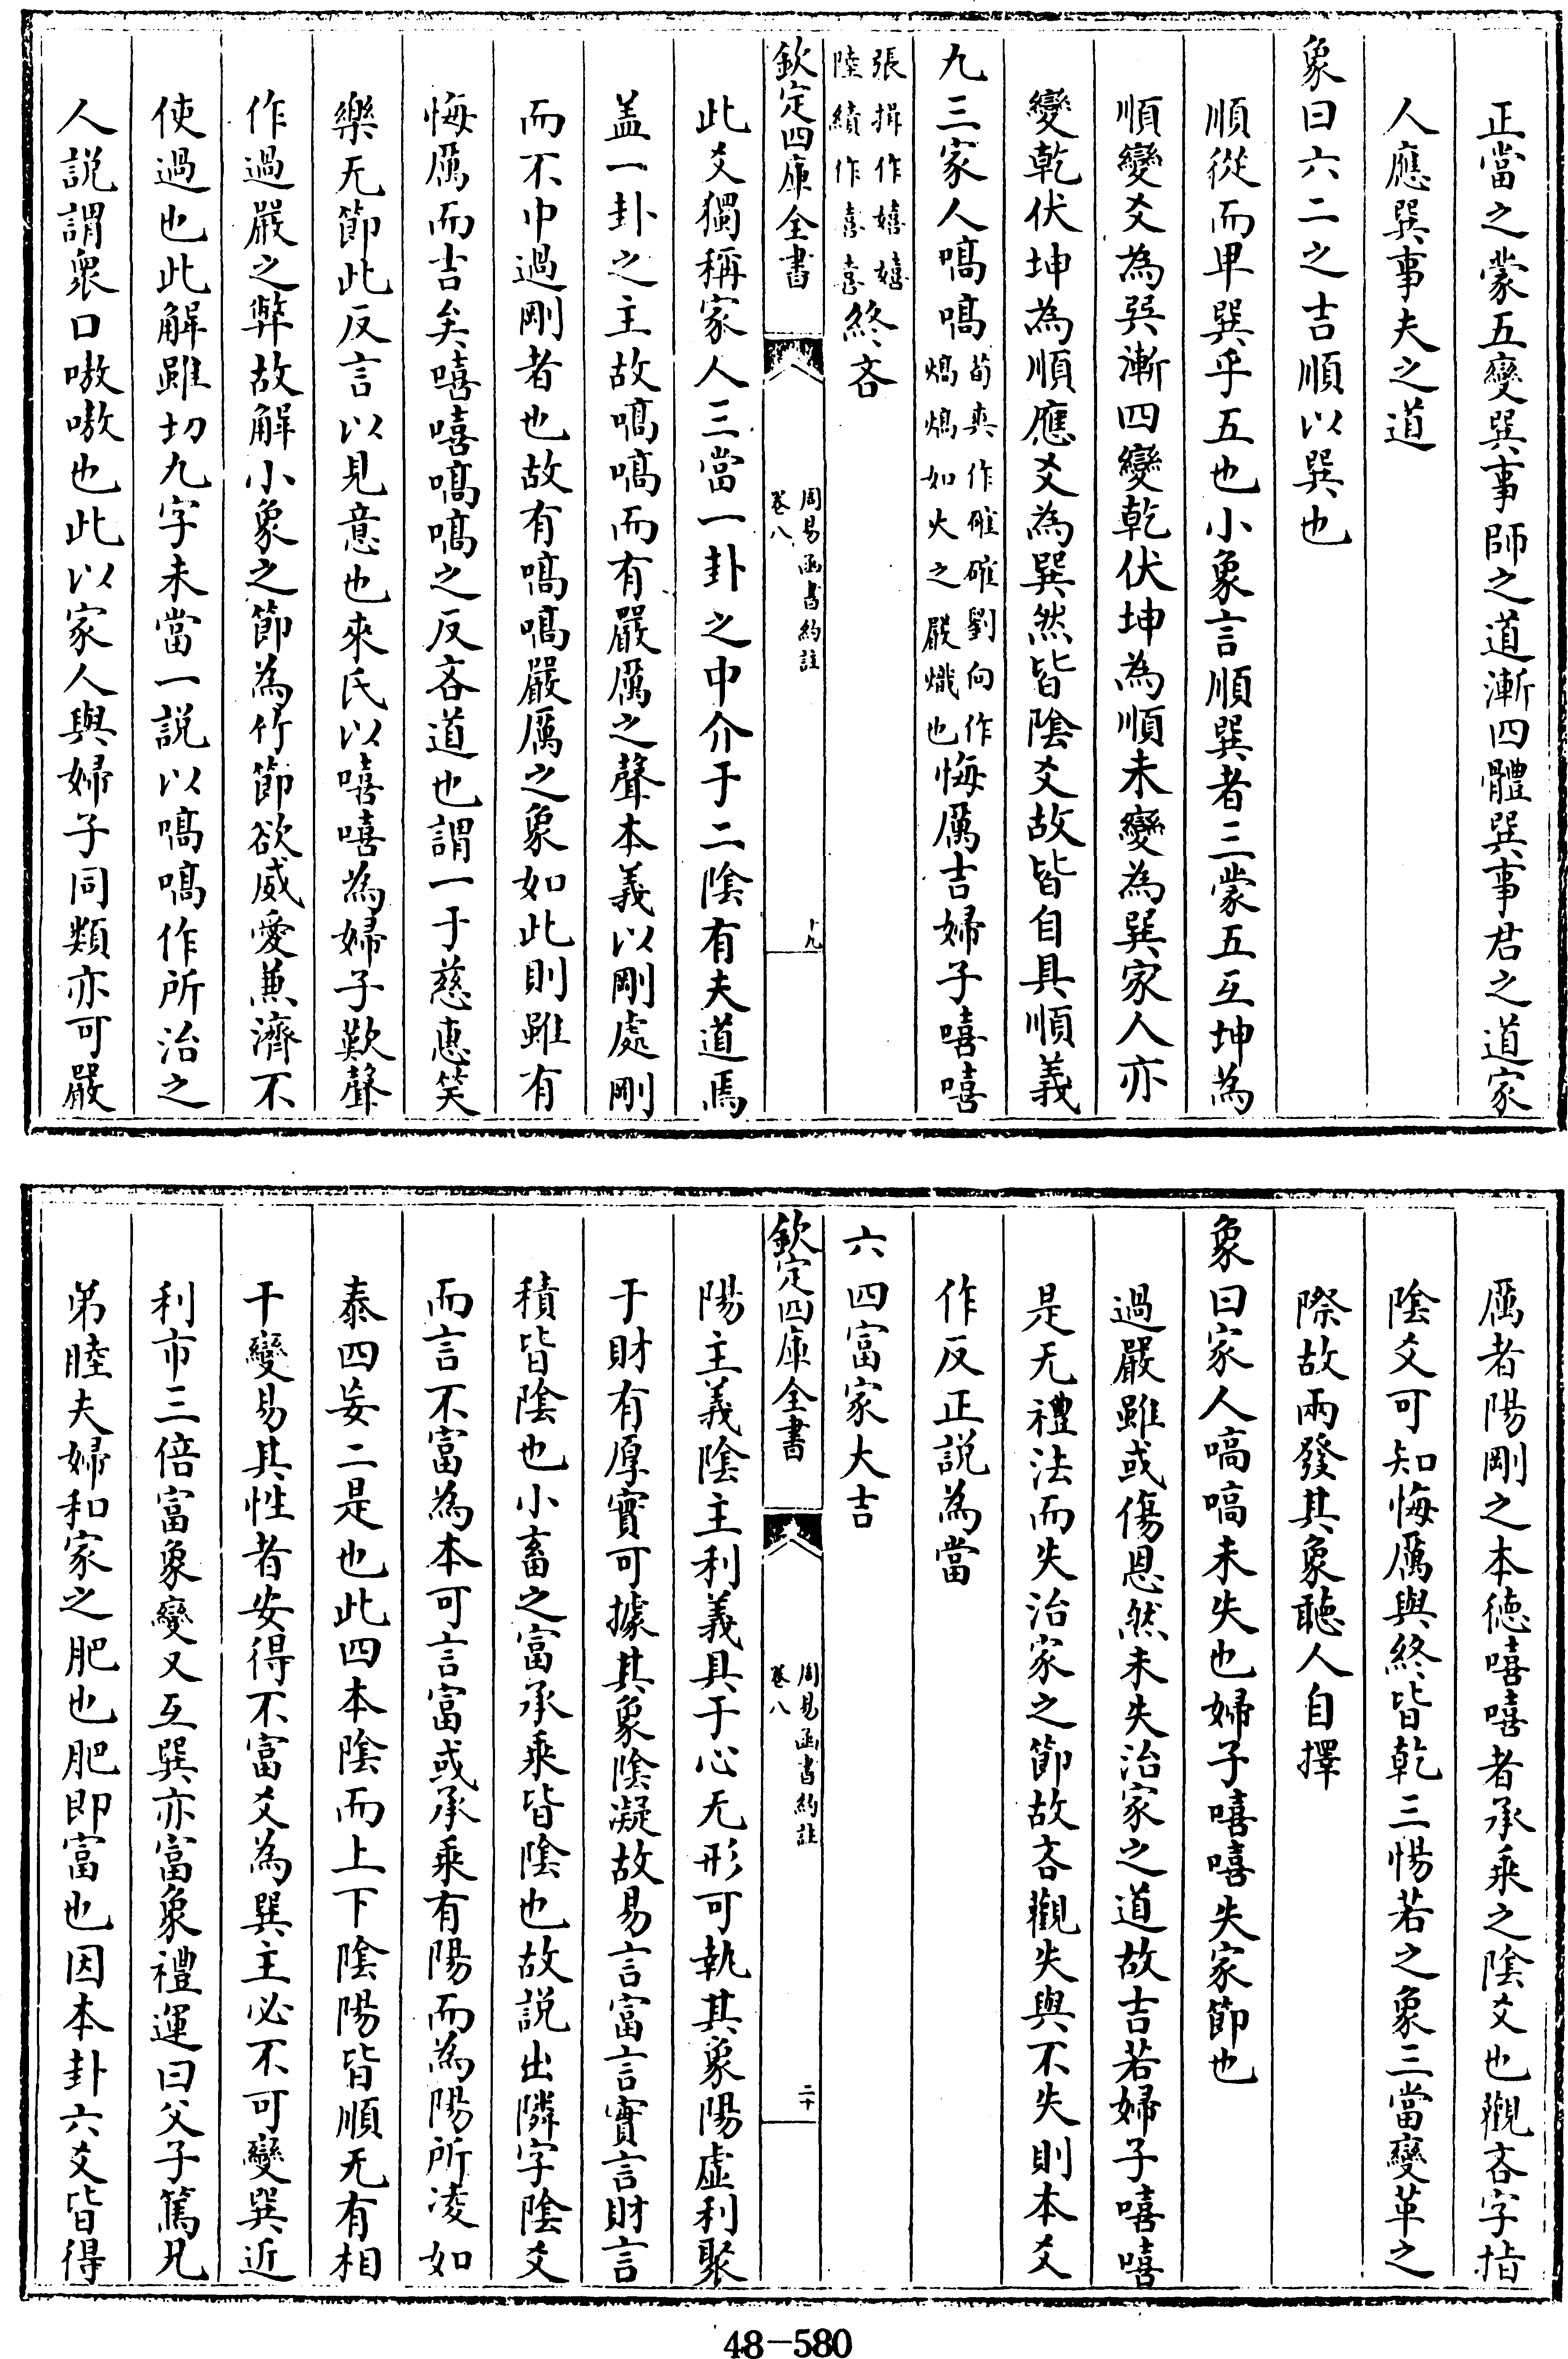 正當之蒙五變巽事師之道漸四體巽事君之道家
人應巽事夫之道
象曰六二之吉順以巽也
順從而卑巽乎五也小象言順巽者三蒙五互坤為
順變爻為巽漸四變乾伏坤為順未變為巽家人亦
變乾伏坤為順應爻為巽然皆陰爻故皆自具順義
九三家人嗃嗃荀爽作確確劉向作熇熇如火之嚴熾也悔厲吉婦子嘻嘻
張揖作嬉嬉陸績作喜喜終吝
欽定四庫全書 周易函書約註 卷八 十九
此爻獨稱家人三當一卦之中介于二陰有夫道焉
盖一卦之主故嗃嗃而有嚴厲之聲本義以剛處剛
而不中過剛者也故有嗃嗃嚴厲之象如此則雖有
悔厲而吉矣嘻嘻嗃嗃之反吝道也謂一于慈惠笑
樂无節此反言以見意也來氏以嘻嘻為婦子歎聲
作過嚴之弊故解小象之節為竹節欲威愛兼濟不
使過也此解雖切九字未當一説以嗃嗃作所治之
人説謂衆口嗷嗷也此以家人與婦子同類亦可嚴
厲者陽剛之本德嘻嘻者承乘之陰爻也觀吝字指
陰爻可知悔厲與終皆乾三惕若之象三當變革之
際故兩發其象聽人自擇
象曰家人嗃嗃未失也婦子嘻嘻失家節也
過嚴雖或傷恩然未失治家之道故吉若婦子嘻嘻
是无禮法而失治家之節故吝觀失與不失則本爻
作反正説為當
六四富家大吉
欽定四庫全書 周易函書約註 卷八 二十
陽主義陰主利義具于心无形可執其象陽虛利聚
于財有厚實可據其象陰凝故易言富言實言財言
積皆陰也小畜之富承乘皆陰也故説出隣字陰爻
而言不富為本可言富或承乘有陽而為陽所凌如
泰四妄二是也此四本陰而上下陰陽皆順无有相
干變易其性者安得不富爻為巽主必不可變巽近
利市三倍富象變又互巽亦富象禮運曰父子篤兄
弟睦夫婦和家之肥也肥即富也因本卦六爻皆得
48-580